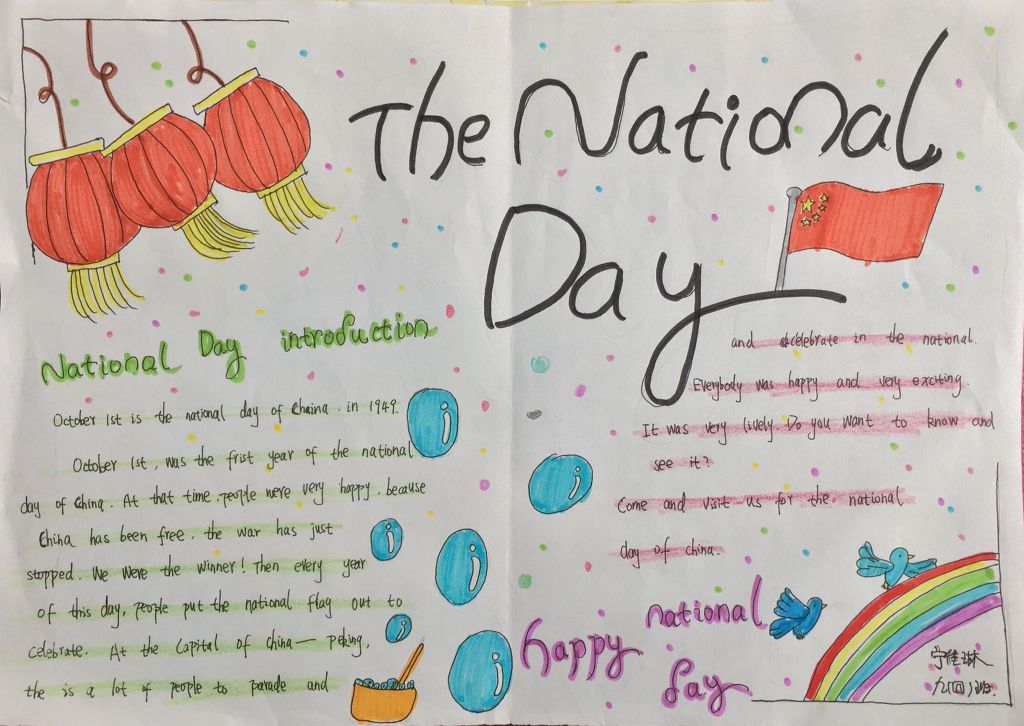 The National
Day
National Day introduction
October 1st is the national day of Chaina. in 1949.
October 1st, was the frist year of the national
day of China. At that time, people were very happy, because
China has been free. the war has just
stopped. We were the winner! Then every year
of this day, people put the national flag out to
celebrate. At the Capital of China — peking,
the is a lot of people to parade and
and celebrate in the national.
Everybody was happy and very exciting.
It was very lively. Do you want to know and
see it?
Come and visit us for the national
day of china.
happy national
Day
九(四)班